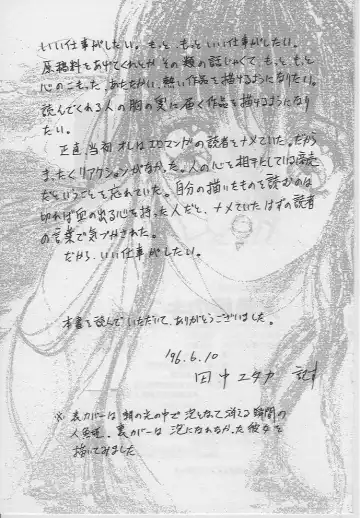 いい仕事がしたい。もっと、もっといい仕事がしたい。
原稿料をあげてくれとかその類の話じゃなくて、もっと、もっと
心のこもった、あたたかい、熱い作品を描けるようになりたい。
読んでくれる人の胸の奥に届く作品を描けるようになり
たい。
正直、当初オレはエロマンガの読者をナメていた。だから
まったくリアクションがなかった。人の心を相手にしている商売
だということを忘れていた。自分の描いたものを読むのは
切れば血の出る心を持った人だと、ナメていたはずの読者
の言葉で気づかされた。
だから、いい仕事がしたい。
本書を読んでいただいて、ありがとうございました。
'96.6.10
田中ユタカ 記
※表カバーは朝の光の中で泡となって消える瞬間の
人魚姫、裏カバーは泡になれなかった彼女を
描いてみました